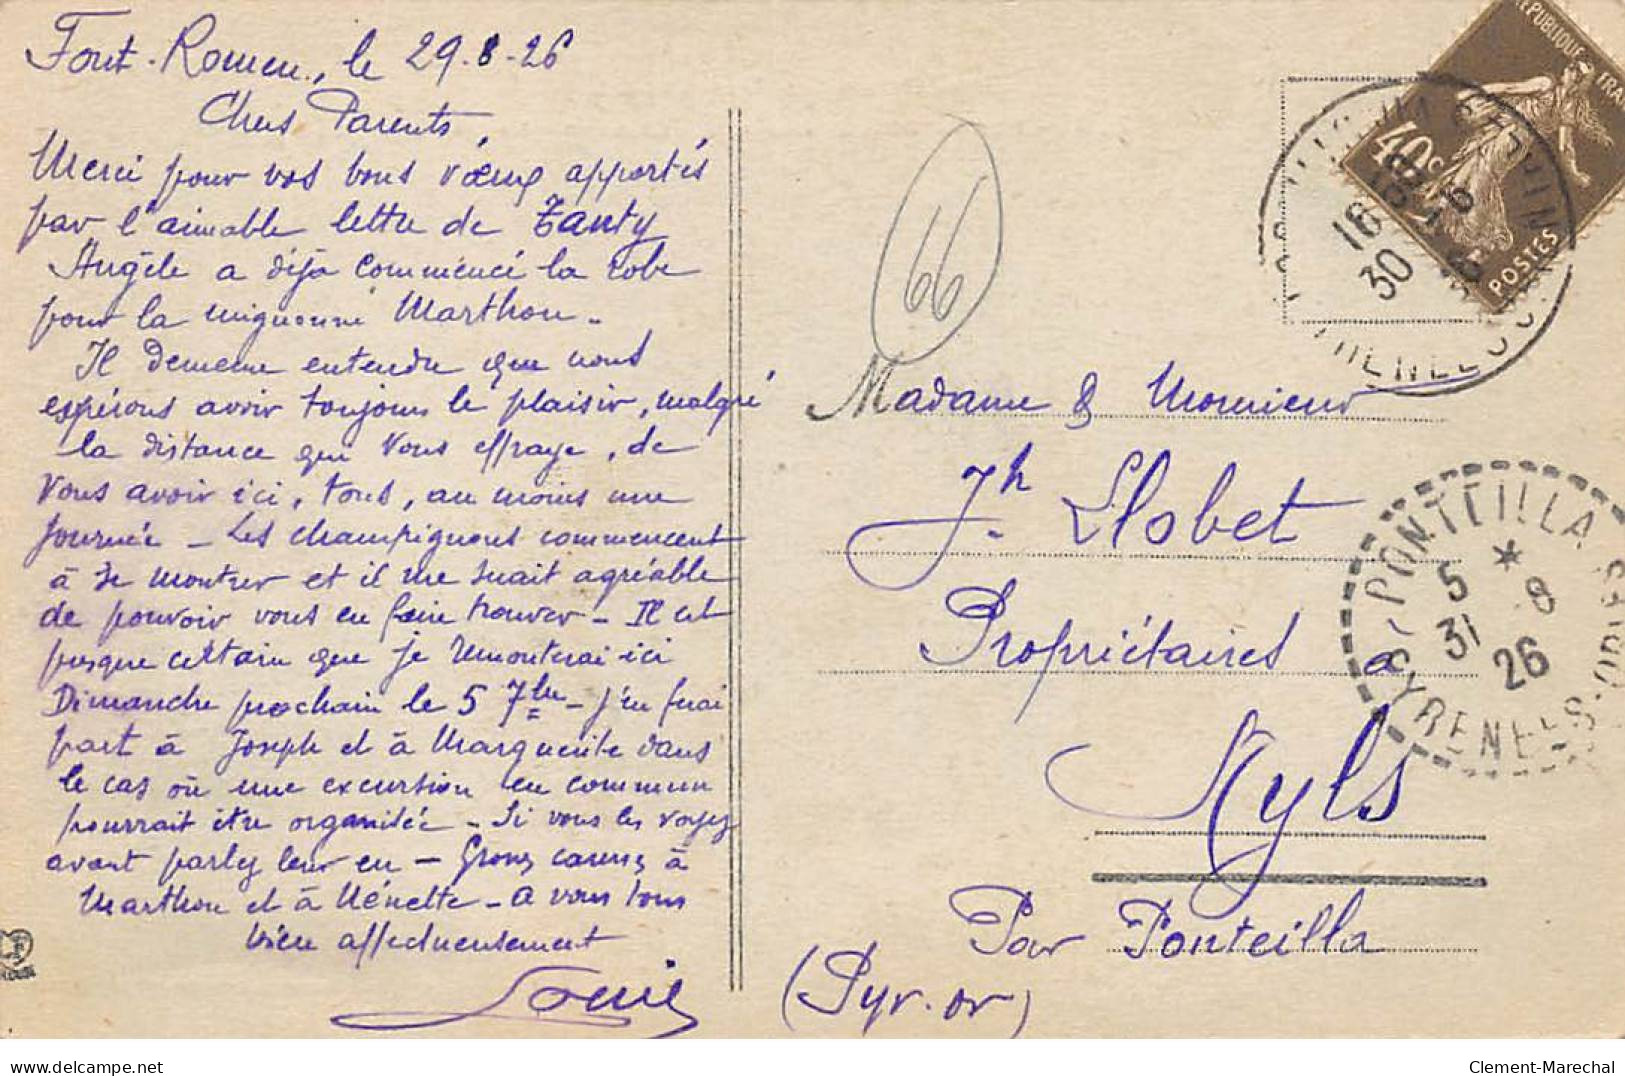 Font-Romeu, le 29-8-26
Chers Parents,
Merci pour vos bons vœux apportés
par l'aimable lettre de Tanty
Angèle a déjà commencé la robe
pour la mignonne Marthou.
Il demeure entendu que nous
espérons avoir toujours le plaisir, malgré
la distance qui vous effraye, de
vous avoir ici, tous, au moins une
journée - Les champignons commencent
à se montrer et il me serait agréable
de pouvoir vous en faire trouver - Il est
presque certain que je remonterai ici
Dimanche prochain le 5 7bre - J'en ferai
part à Joseph et à Marguerite dans
le cas où une excursion en commun
pourrait être organisée - Si vous les voyez
avant parlez leur en - Grosses caresses à
Marthou et à Nénette - A vous tous
bien affectueusement
Louis
66
Madame & Monsieur
Jh. Llobet
Propriétaires à
Nyls
Par Ponteilla
(Pyr. or)
REPUBLIQUE FRA
40c
POSTES
16
30
PONTEILLA
5 * 8
31
26
PYRENEES-OR
www.delcampe.net
Clement-Marechal